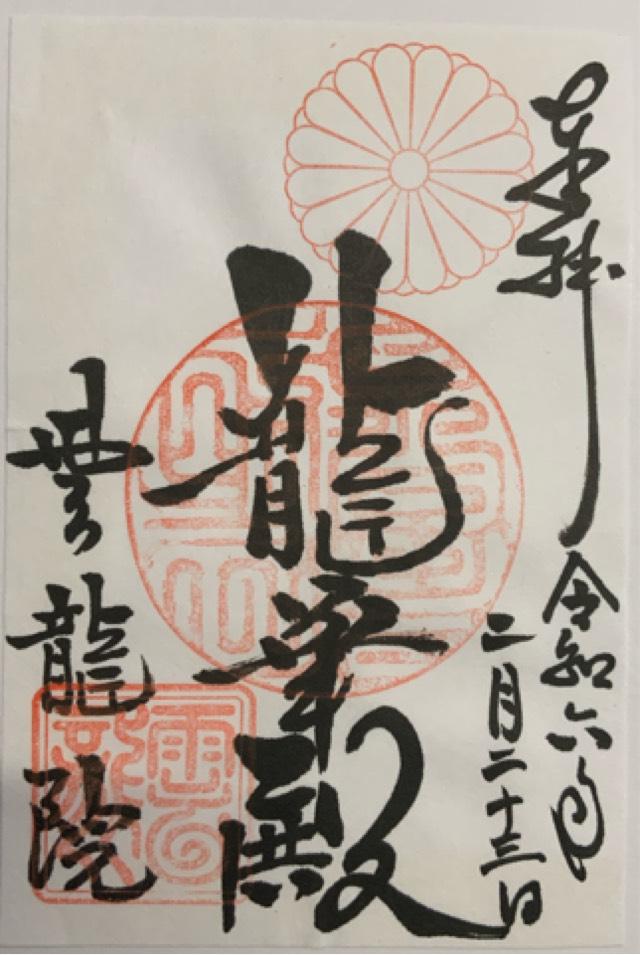 奉拝
令和六年
二月二十三日
龍華殿
雲龍院